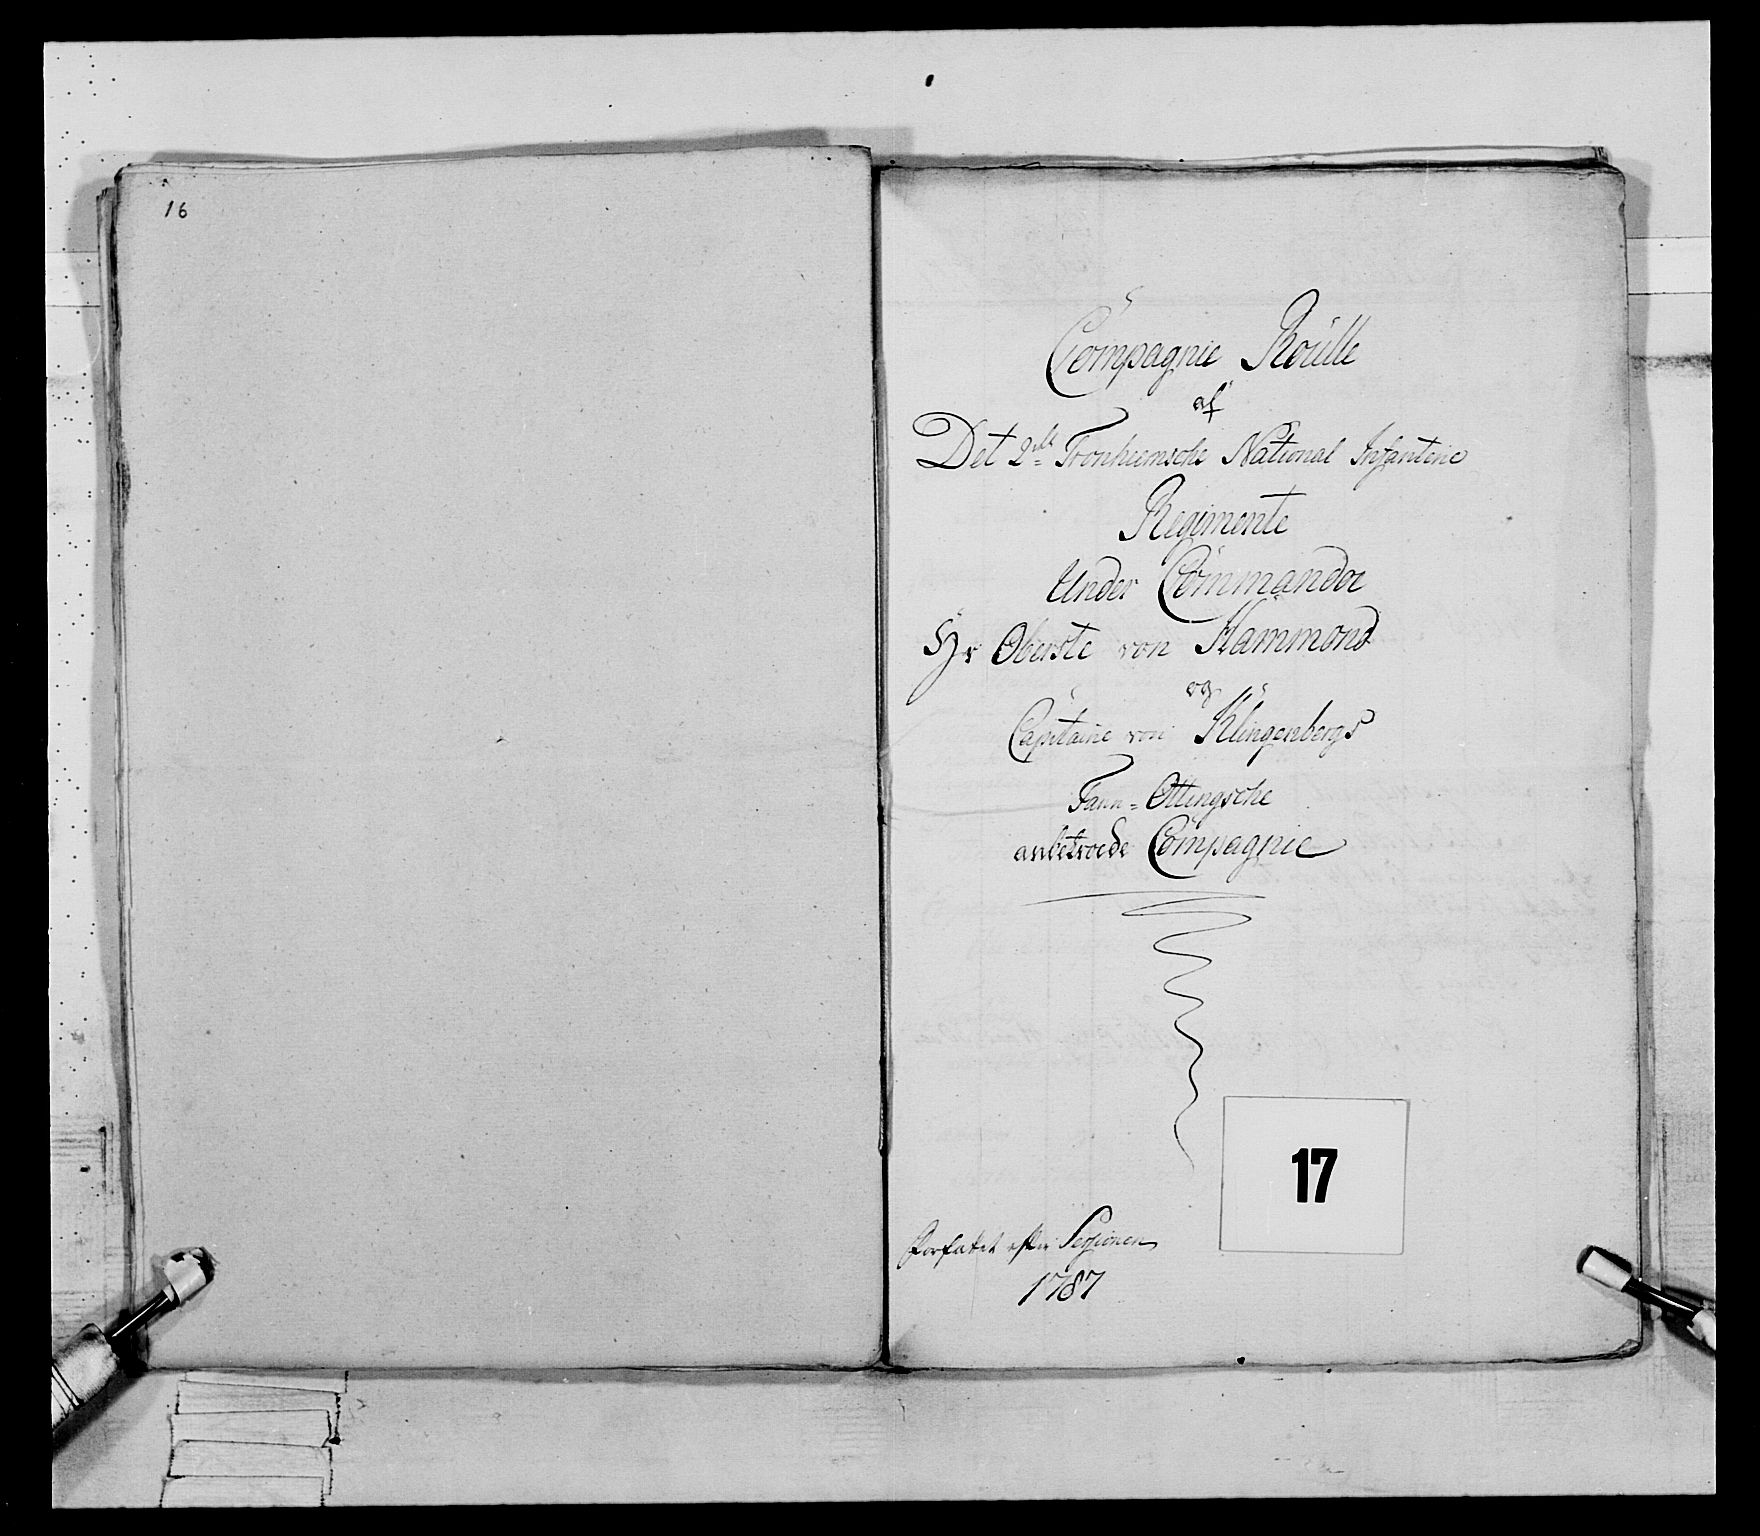 16
Compagnie Roülle
af
Det 2det Tronhiemsche National Infanterie
Regimente
Under Commando
Hr Oberste von Hammond
og
Capitaine von Klingenbergs
Tann=Ottingsche
anbetroede Compagnie
17
Forfatet efter Sessionen
1787